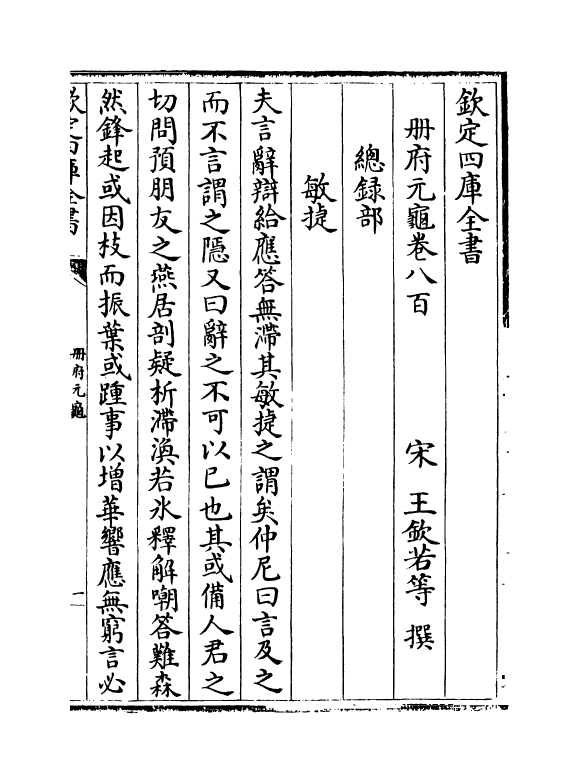 欽定四庫全書
册府元龜卷八百
宋 王欽若等 撰
總録部
敏捷
夫言辭辯給應答無滯其敏捷之謂矣仲尼曰言及之
而不言謂之隱又曰辭之不可以已也其或備人君之
切問預朋友之燕居剖疑析滯渙若氷釋解嘲答難森
然鋒起或因枝而振葉或踵事以增華響應無窮言必
欽定四庫全書
册府元龜
一